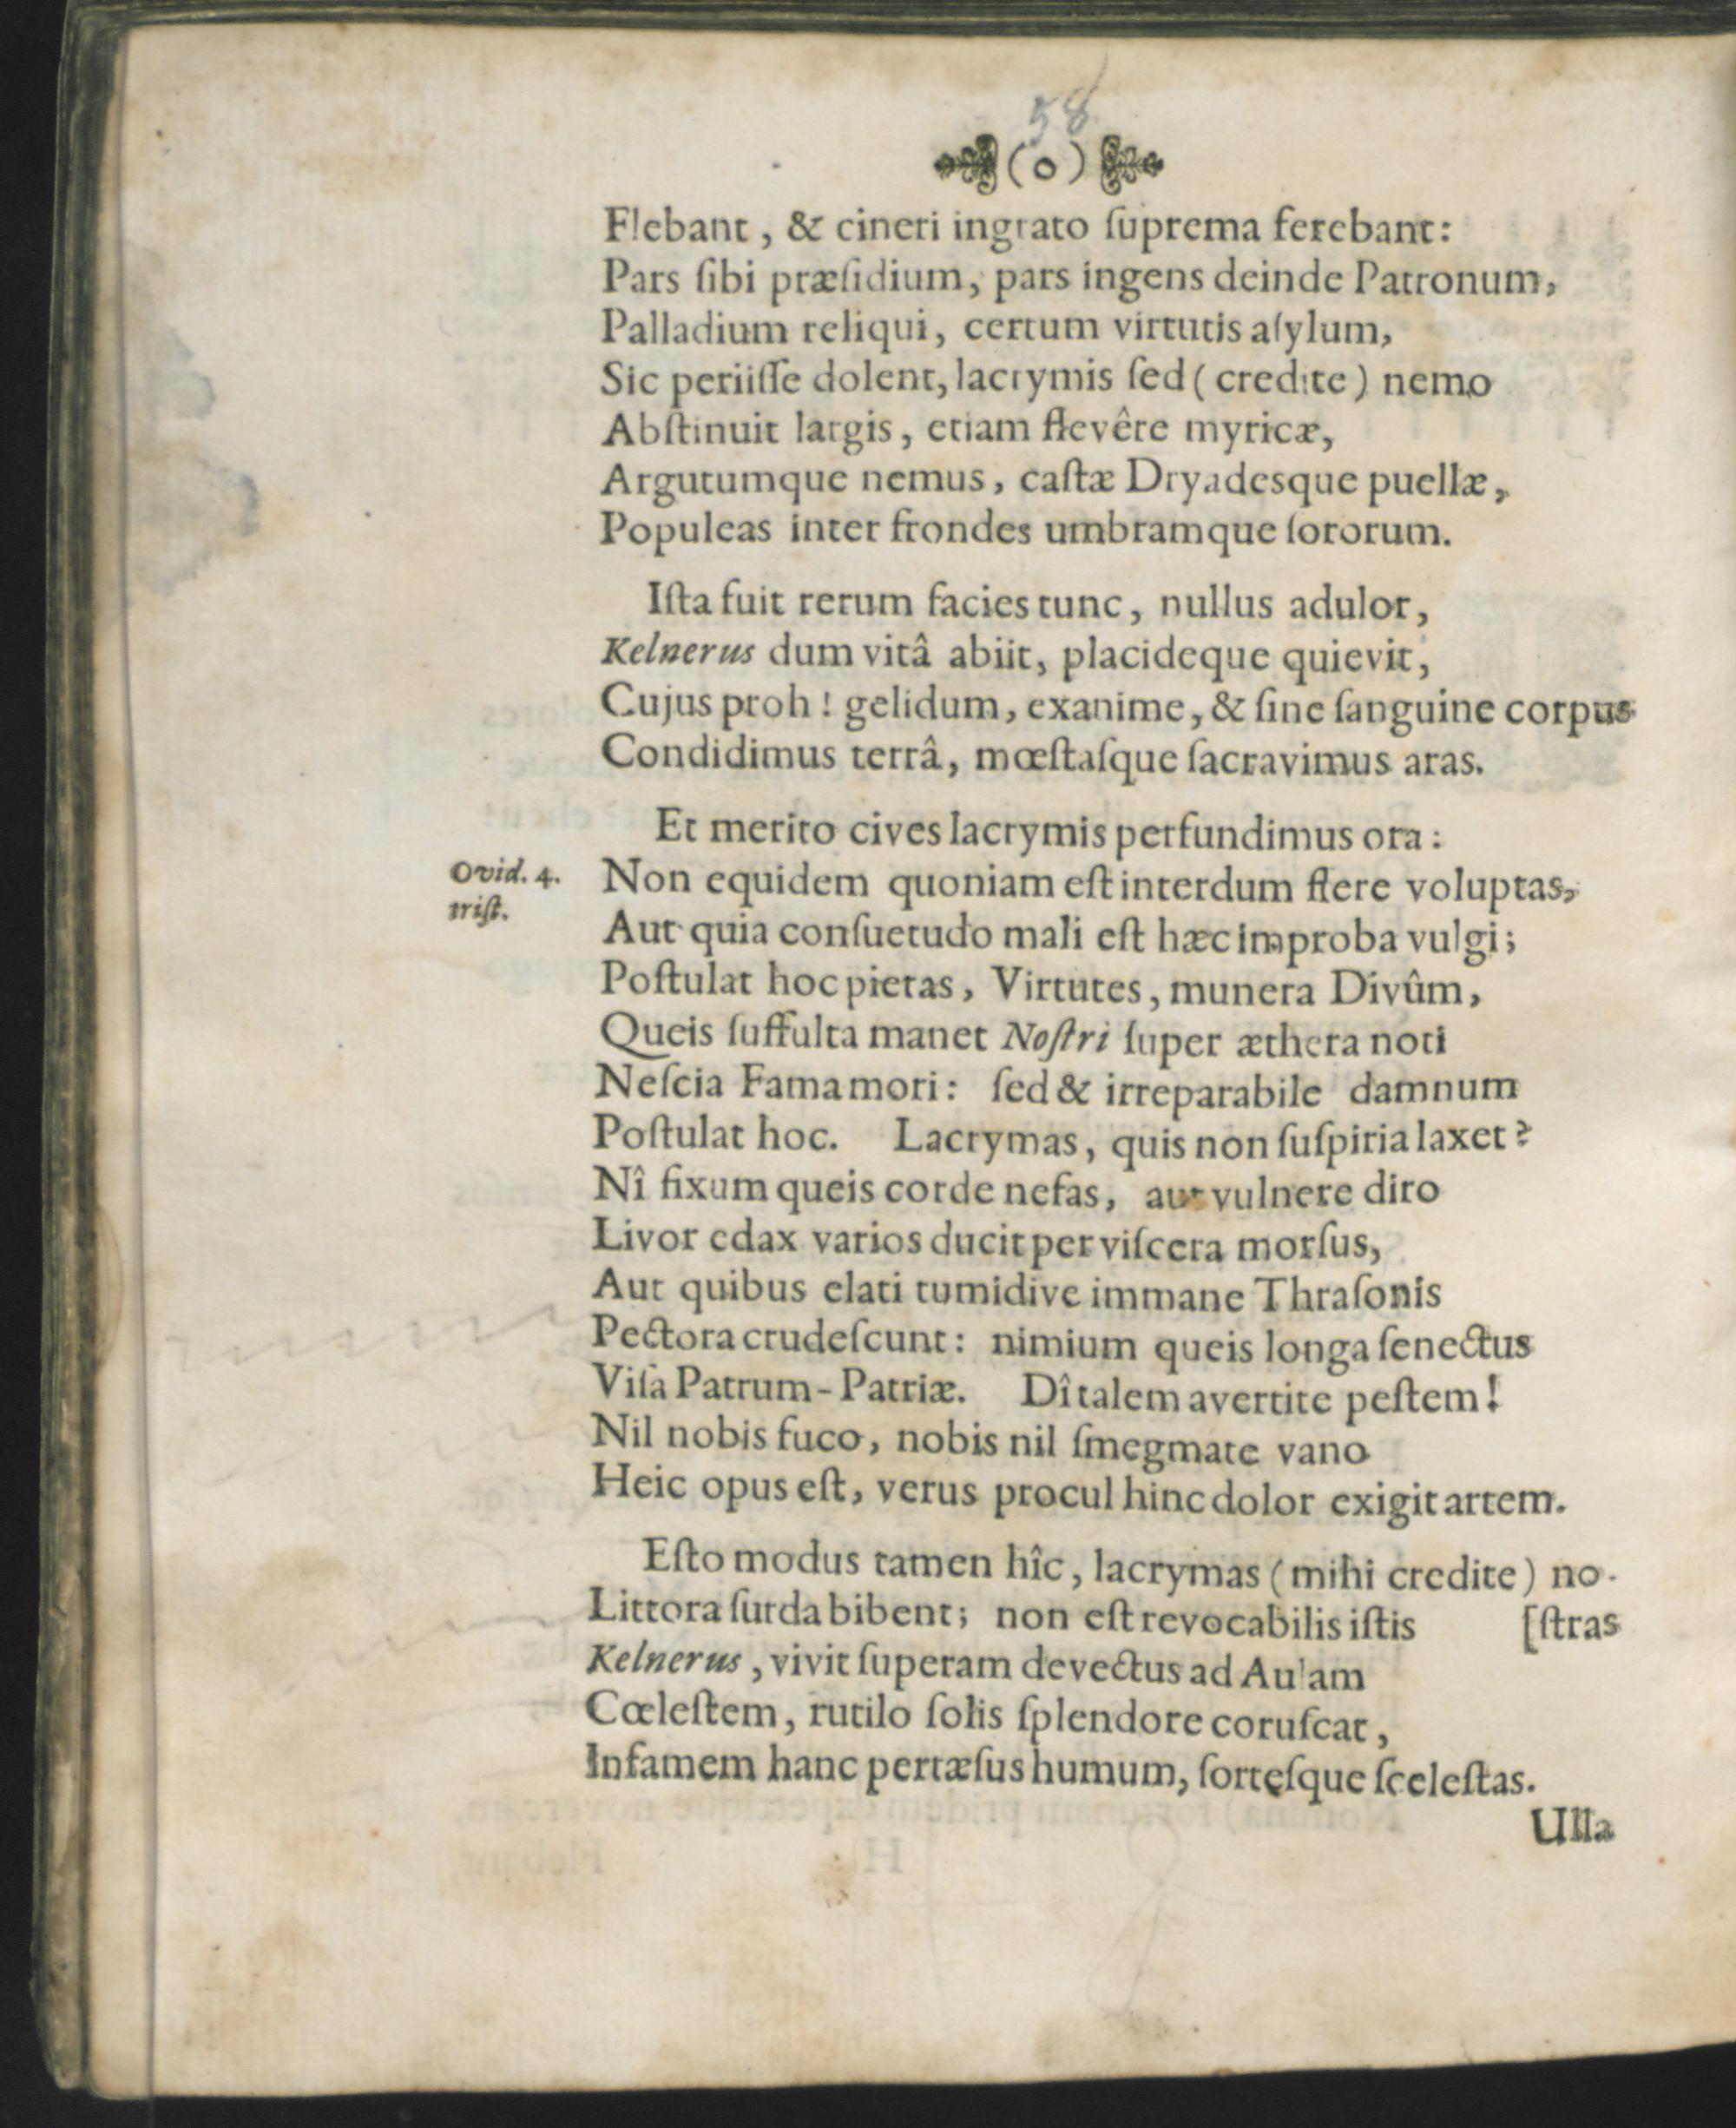 58
(o)
Flebant, & cineri ingrato ſuprema ferebant:
Pars ſibi præſidium, pars ingens deinde Patronum,
Palladium reliqui, certum virtutis aſylum,
Sic periiſſe dolent, lacrymis ſed (credite) nemo
Abſtinuit largis, etiam flevêre myricæ,
Argutumque nemus, caſtæ Dryadesque puellæ,
Populeas inter frondes umbramque ſororum.
Iſta fuit rerum facies tunc, nullus adulor,
Kelnerus dum vitâ abiit, placideque quievit,
Cujus proh! gelidum, exanime, & ſine ſanguine corpus
Condidimus terrâ, mœſtaſque ſacravimus aras.
Et merito cives lacrymis perfundimus ora:
Ovid. 4. Non equidem quoniam eſt interdum flere voluptas,
triſt. Aut quia conſuetudo mali eſt hæc improba vulgi;
Poſtulat hoc pietas, Virtutes, munera Divûm,
Queis ſuffulta manet Noſtri ſuper æthera noti
Neſcia Fama mori: ſed & irreparabile damnum
Poſtulat hoc. Lacrymas, quis non ſuſpiria laxet?
Nî fixum queis corde nefas, aut vulnere diro
Livor edax varios ducit per viſcera morſus,
Aut quibus elati tumidive immane Thraſonis
Pectora crudeſcunt: nimium queis longa ſenectus
Viſa Patrum-Patriæ. Dî talem avertite peſtem!
Nil nobis fuco, nobis nil ſmegmate vano
Heic opus eſt, verus procul hinc dolor exigit artem.
Eſto modus tamen hîc, lacrymas (mihi credite) no-
Littora ſurda bibent; non eſt revocabilis iſtis [ſtras
Kelnerus, vivit ſuperam devectus ad Aulam
Cœleſtem, rutilo ſolis ſplendore coruſcat,
Infamem hanc pertæſus humum, ſortęſque ſceleſtas.
Ulla